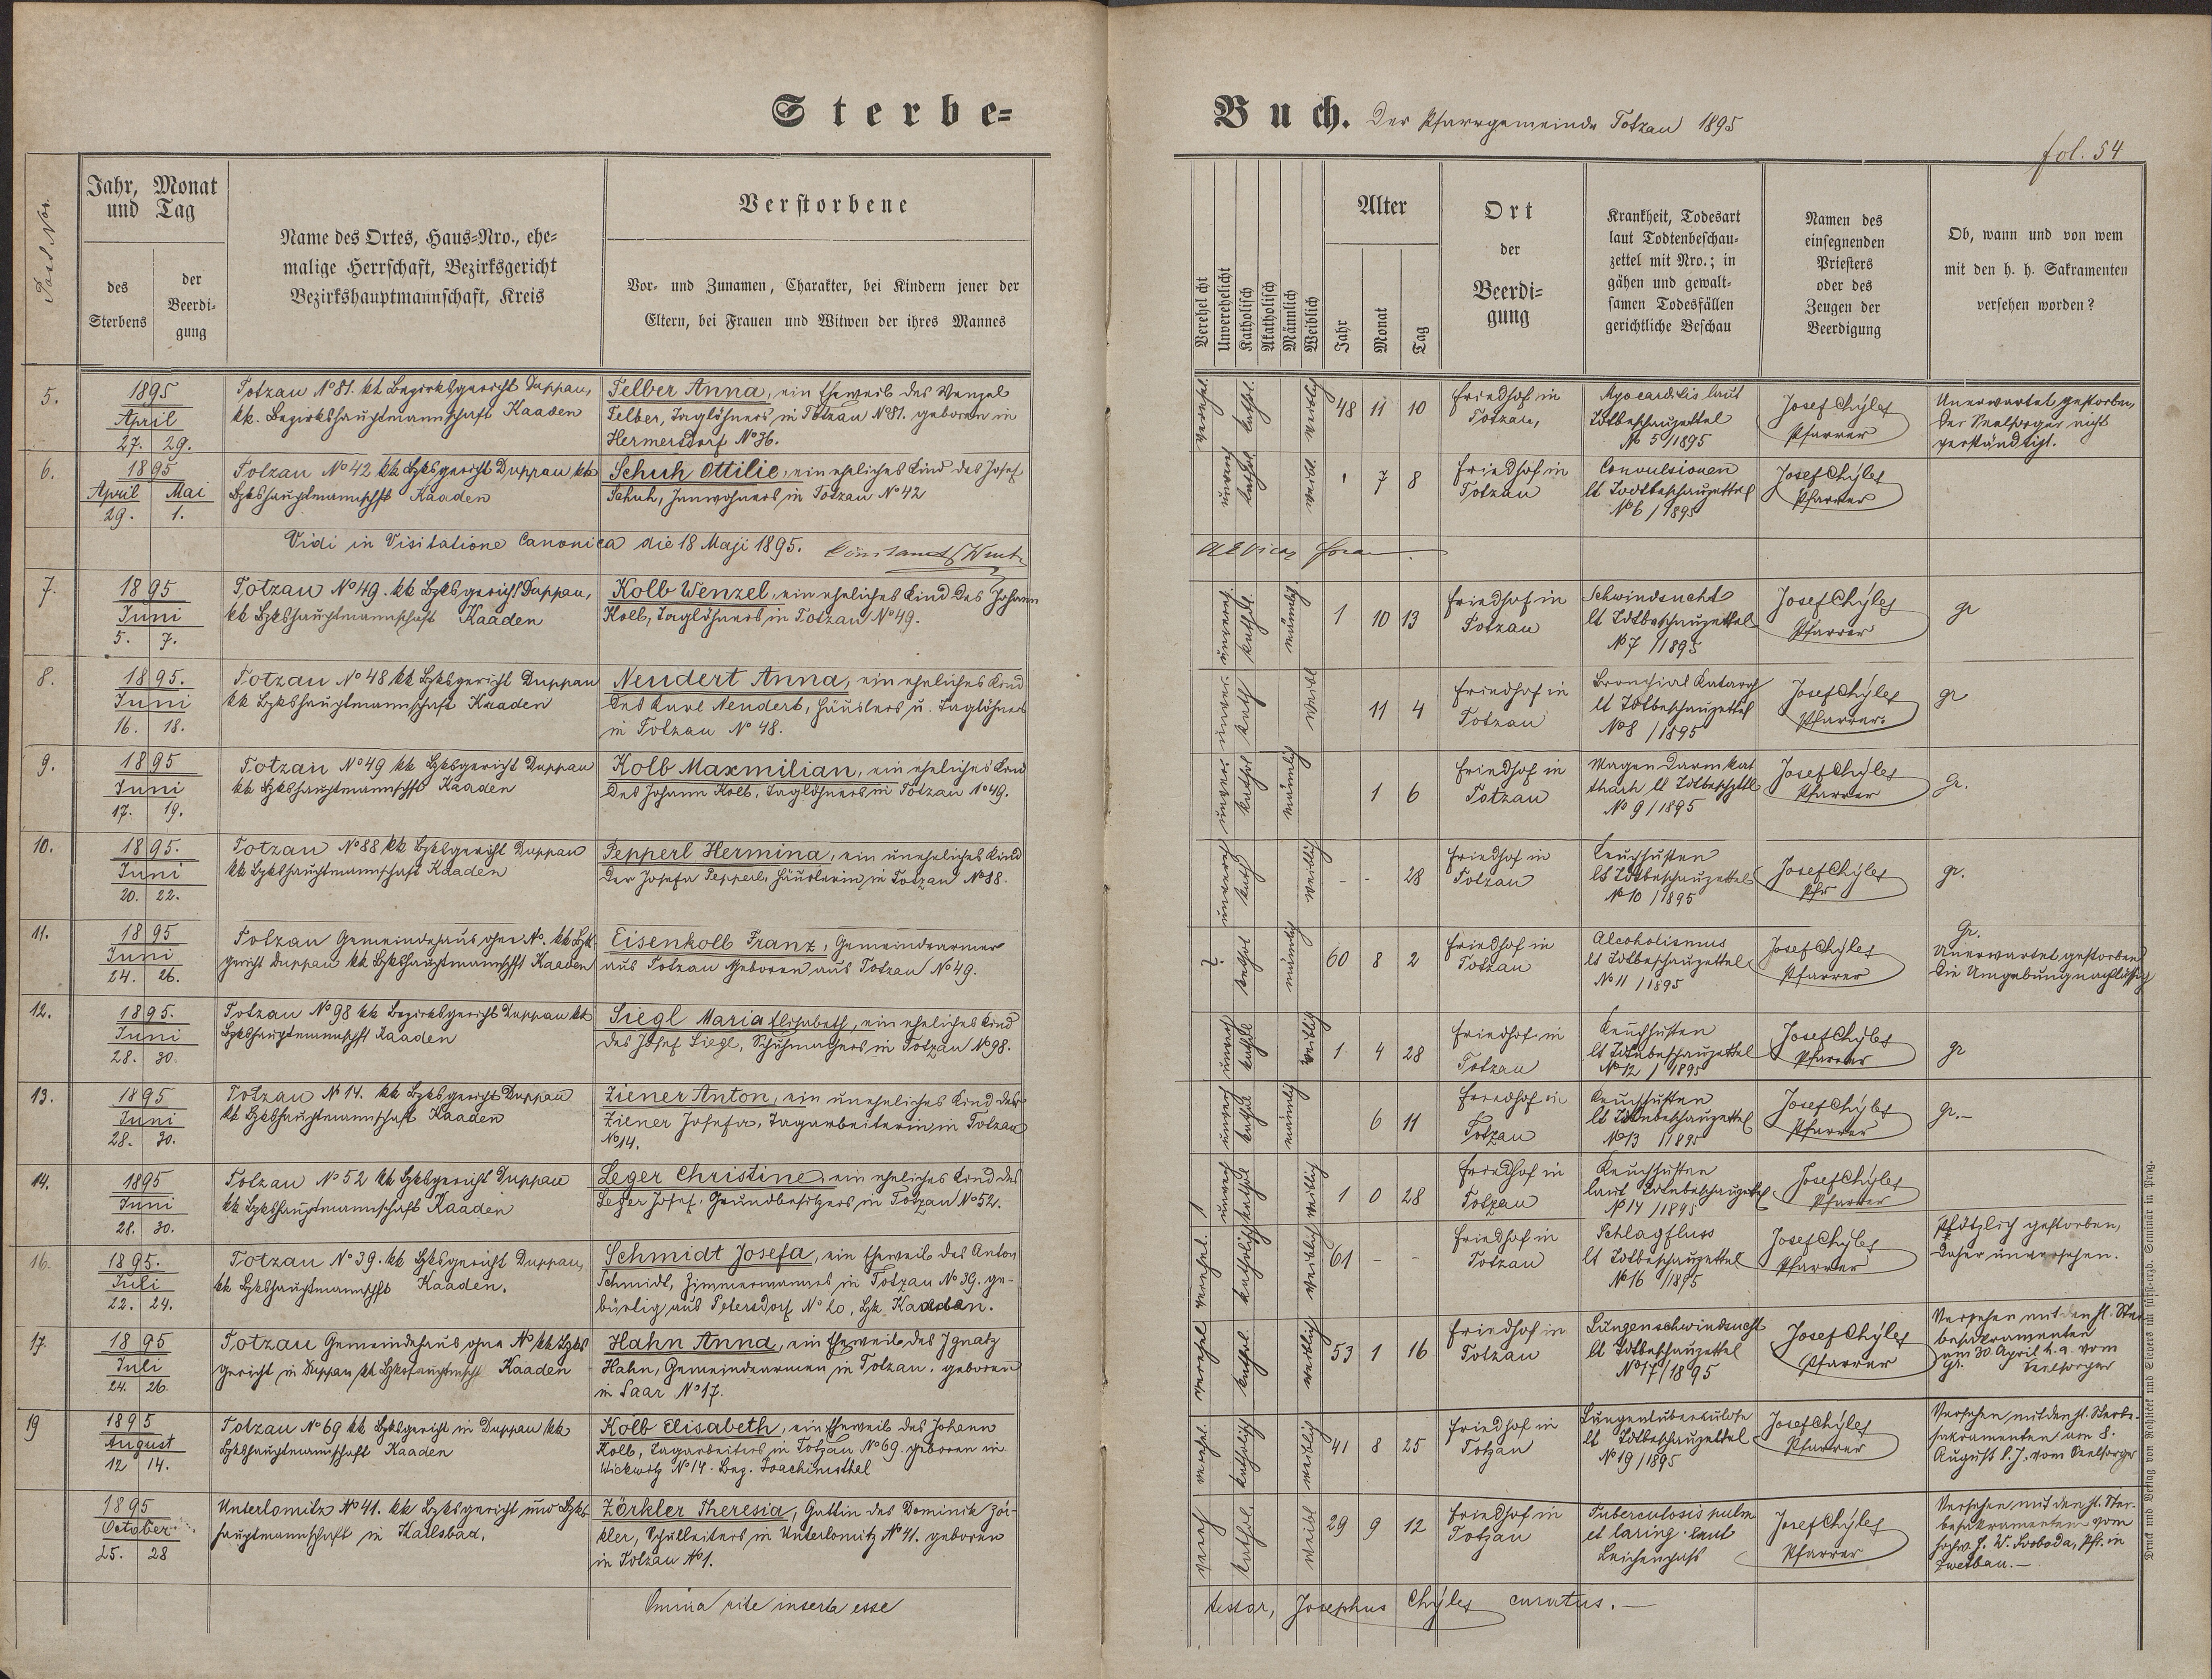 Sterbe=
Buch. Der Pfarrgemeinde Totzau 1895
fol. 54
Jahr, Monat
und Tag
des
Sterbens
der
Beerdi-
gung
Name des Ortes, Haus-Nro., ehe-
malige Herrschaft, Bezirksgericht
Bezirkshauptmannschaft, Kreis
Verstorbene
Vor- und Zunamen, Charakter, bei Kindern jener der
Eltern, bei Frauen und Witwen der ihres Mannes
Verehelicht
Unverehelicht
Katholisch
Akatholisch
Männlich
Weiblich
Alter
Jahr
Monat
Tag
Ort
der
Beerdi-
gung
Krankheit, Todesart
laut Todtenbeschau-
zettel mit Nro.; in
gähen und gewalt-
samen Todesfällen
gerichtliche Beschau
Namen des
einsegnenden
Priesters
oder des
Zeugen der
Beerdigung
Ob, wann und von wem
mit den h. h. Sakramenten
versehen worden?
5.
1895
April
27. 29.
Totzau N° 81. kk Bezirksgericht Duppau,
kk. Bezirkshauptmannschaft Kaaden
Felber Anna, ein Eheweib des Wenzel
Felber, Taglöhners in Totzau N° 81. geboren in
Hermersdorf N° 36.
verehel. kathol. weiblich
48 11 10
Friedhof in
Totzau,
Myocarditis laut
Tdtbeschauzettel
N° 5/1895
Josef Chyles
Pfarrer
Unerwartet gestorben,
der Seelsorger nicht
verständigt.
6.
1895
April Mai
29. 1.
Totzau N° 42 kk Bzksgericht Duppau kk
Bzkshauptmannschft Kaaden
Schuh Ottilie, ein eheliches Kind des Josef
Schuh, Innwohners in Totzau N° 42
7 8
Friedhof in
Totzau
Convulsionen
lt Todtbeschauzettel
N° 6/1895
Josef Chyles
Pfarrer
Vidi in Visitatione Canonica die 18 Maji 1895.
7.
1895
Juni
5. 7.
Totzau N° 49. kk Bzksgericht Duppau,
kk Bzkshauptmannschaft Kaaden
Kolb Wenzel, ein eheliches Kind des Johann
Kolb, Taglöhners in Totzau N° 49.
männlich
1 10 13
Friedhof in
Totzau
Schwindsucht
lt Tdtbeschauzettel
N° 7/1895
Josef Chyles
Pfarrer
gr
8.
1895.
Juni
16. 18.
Totzau N° 48 kk Bzksgericht Duppau
kk Bzkshauptmannschaft Kaaden
Neudert Anna, ein eheliches Kind
des Karl Neudert, Häuslers u. Taglöhners
in Totzau N° 48.
11 4
Friedhof in
Totzau
Bronchial Katarrh
lt Tdtbeschauzettel
N° 8/1895
Josef Chyles
Pfarrer
gr
9.
1895
Juni
17. 19.
Totzau N° 49 kk Bzksgericht Duppau
kk Bzkshauptmannschft Kaaden
Kolb Maxmilian, ein eheliches Kind
des Johann Kolb, Taglöhners in Totzau N° 49.
männlich
1 6
Friedhof in
Totzau
Magen Darmkat
tharh lt Tdtbeschzttl
N° 9/1895
Josef Chyles
Pfarrer
gr.
10.
1895.
Juni
20. 22.
Totzau N° 88 kk Bzksgericht Duppau
kk Bzkshauptmannschaft Kaaden
Pepperl Hermina, ein uneheliches Kind
der Josefa Pepperl, Häuslerin in Totzau N° 88.
weiblich
- - 28
Friedhof in
Totzau
Keuchhusten
lt Tdtbeschauzettel
N° 10/1895
Josef Chyles
Pfr
gr.
11.
1895
Juni
24. 26.
Totzau Gemeindehaus ohne N°. kk Bzk
gericht Duppau kk Bzkshauptmannschft Kaaden
Eisenkolb Franz, Gemeindearmer
aus Totzau Geboren aus Totzau N° 49.
? kathol männlich
60 8 2
Friedhof in
Totzau
Alcoholismus
lt Tdtbeschauzettel
N° 11/1895
Josef Chyles
Pfarrer
Gr.
Unerwartet gestorben
die Umgebung nachlässig
12.
1895.
Juni
28. 30.
Totzau N° 98 kk Bezirksgericht Duppau kk
Bzkshauptmannschft Kaaden
Siegl Maria Elisabeth, ein eheliches Kind
des Josef Siegl, Schuhmachers in Totzau N° 98.
weiblich
1 4 28
Friedhof in
Totzau
Keuchhusten
lt Tdtnbeschauzettel
N° 12/1895
Josef Chyles
Pfarrer
gr
13.
1895
Juni
28. 30.
Totzau N° 14. kk Bzksgericht Duppau
kk Bzkshauptmannschaft Kaaden
Ziener Anton, ein uneheliches Kind der
Ziener Josefa, Tagarbeiterin, in Totzau
N° 14.
männlich
6 11
Friedhof in
Totzau
Keuchhusten
lt Tdtnbeschauzettel
N° 13 1895
Josef Chyles
Pfarrer
gr.-
14.
1895
Juni
28. 30.
Totzau N° 52 kk Bzksgericht Duppau
kk Bzkshauptmannschaft Kaaden
Leger Christine ein eheliches Kind des
Leger Josef, Grundbesitzers in Totzau N° 52.
weiblich
1 0 28
Friedhof in
Totzau
Keuchhusten
laut Tdtnbeschauzettel
N° 14/1895
Josef Chyles
Pfarrer
16.
1895.
Juli
22. 24.
Totzau N° 39. kk Bzksgericht Duppau,
kk Bzkshauptmannschft Kaaden.
Schmidt Josefa, ein Eheweib des Anton
Schmidt, Zimmermannes in Totzau N° 39. ge-
bürtig aus Petersdorf N° 20, Bzk. Kaaden.
verehel. katholisch weiblich
61 - -
Friedhof in
Totzau
Schlagfluss
lt Tdtbeschauzettel
N° 16 1895
Josef Chyles
Pfarrer
Plötzlich gestorben,
daher unversehen.
17.
1895
Juli
24. 26.
Totzau Gemeindehaus ohne N° kk Bzks
gericht in Duppau kk Bzkshauptmsch. Kaaden
Hahn Anna, ein Eheweib des Ignatz
Hahn, Gemeindearmen in Totzau, geboren
in Saar N° 17.
verehel kathol. weiblich
53 1 16
Friedhof in
Totzau
Lungenschwindsucht
lt Tdtbeschauzettel
N° 17/1895
Josef Chyles
Pfarrer
Versehen mit den hl. Ster
besakramenten
am 30. April h. a. vom
gr. Seelsorger
19
1895
August
12 14.
Totzau N° 69 kk Bzksgericht in Duppau kk
Bzkshauptmannschaft Kaaden
Kolb Elisabeth, ein Eheweib des Johann
Kolb, Tagarbeiters in Totzau N° 69. geboren in
Wickwitz N° 14. Bez. Joachimsthal
verehel. katholisch weiblich
41 8 25
Friedhof in
Totzau
Lungentuberkulose
lt Tdtbeschauzettel
N° 19/1895
Josef Chyles
Pfarrer
Versehen mit den hl. Sterbe-
sakramenten am 8.
August l. J. vom Seelsorger
1895
October
25. 28
Unterlomitz N° 41. kk Bzksgericht und Bzks
hauptmannschaft in Karlsbad.
Zörkler Theresia, Gattin des Dominik Zör-
kler, Schulleiters in Unterlomitz N° 41. geboren
in Totzau N° 1.
kathol. weibl
29 9 12
Friedhof in
Totzau
Tuberculosis pulm
et laring. laut
Leichenpass
Josef Chyles
Pfarrer
Versehen mit den hl. Ster-
besakramenten vom
hochw. H. W. Swoboda, Pfr. in
Zwetbau.-
Omnia rite inserta esse
testor, Josephus Chyles curatus.-
Druck und Verlag von Rohliček und Sievers im fürst-erzb. Seminär in Prag.